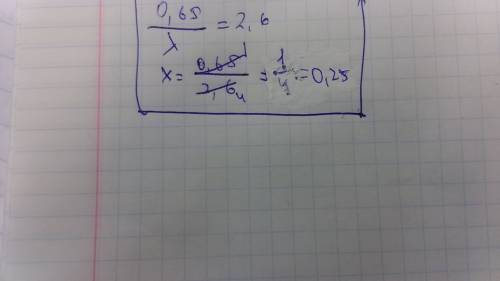 0,65 / x = 2,6
x = 0,65 / 2,6 = 1/4 = 0,25